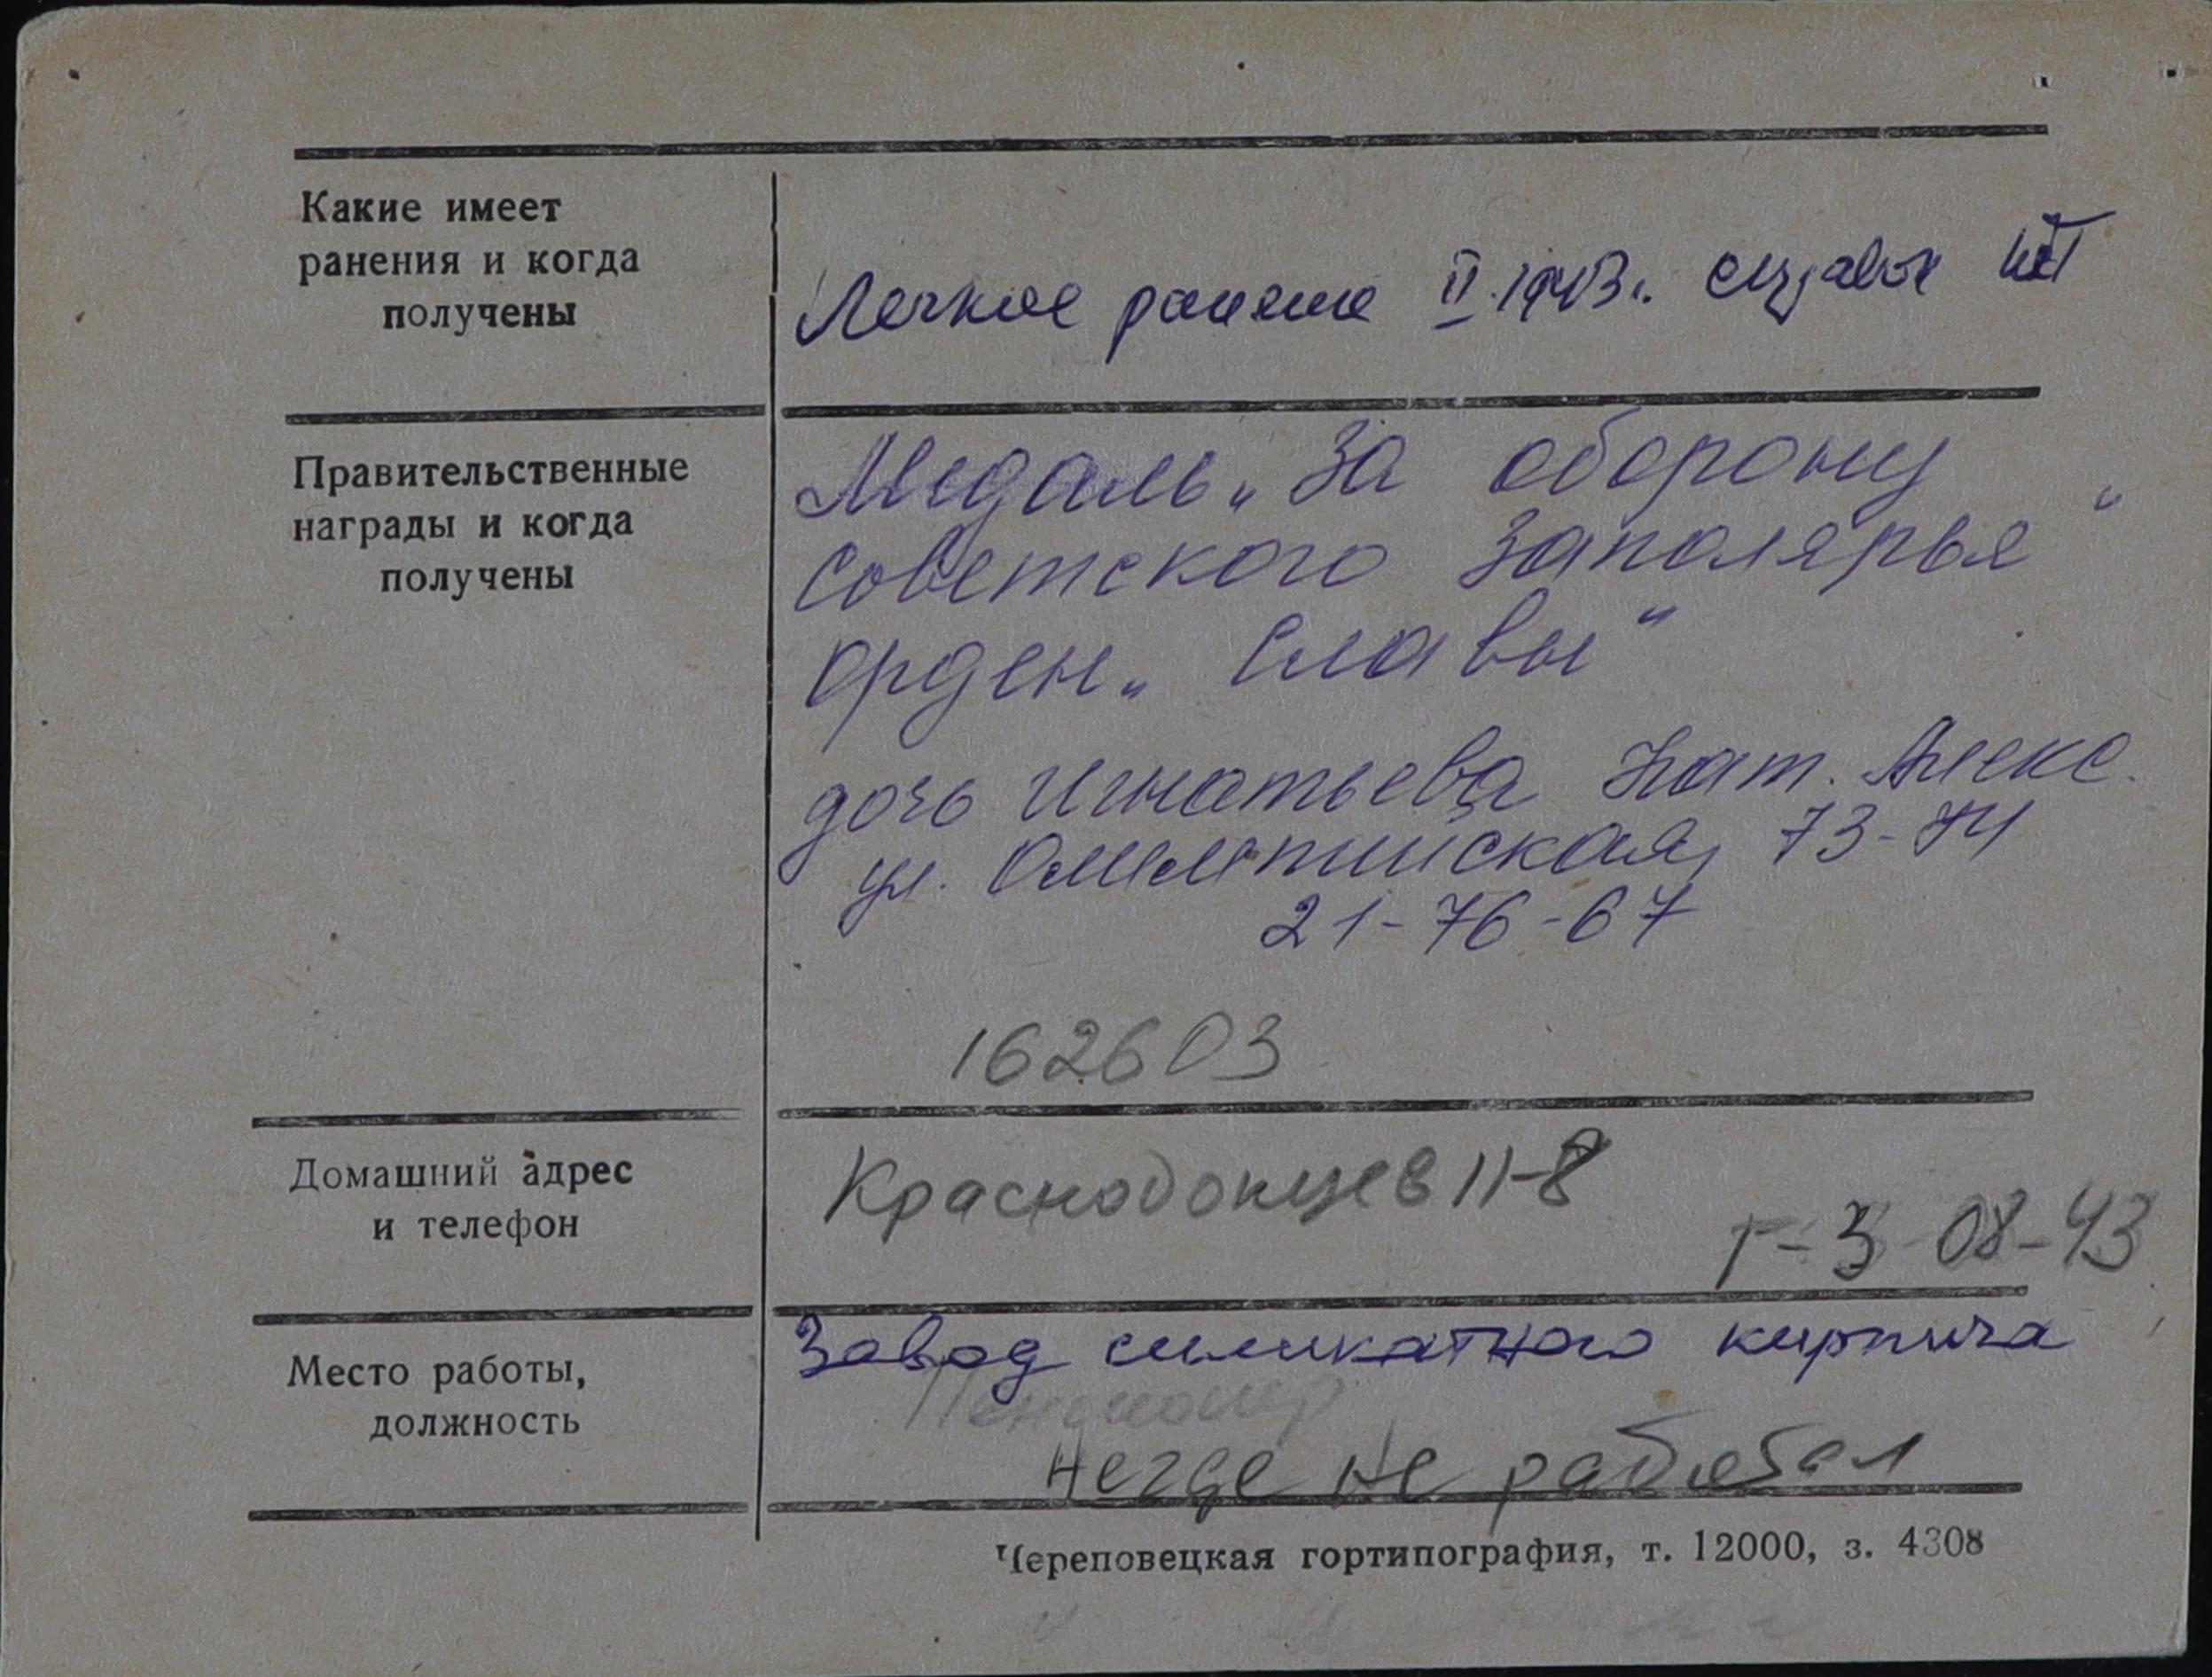 Какие имеет
ранения и когда
получены
Легкое ранение II.1943г. справок нет
Правительственные
награды и когда
получены
Медаль „За оборону
Советского Заполярья“
орден „Славы“
дочь Игнатьева Нат. Алекс.
ул. Олимпийская, 73-74
21-76-67
162603
Домашний адрес
и телефон
Краснодонцев 11-8
т-3-08-43
Место работы,
должность
Завод силикатного кирпича
Пенсионер
негде не работал
Череповецкая гортипография, т. 12000, з. 4308